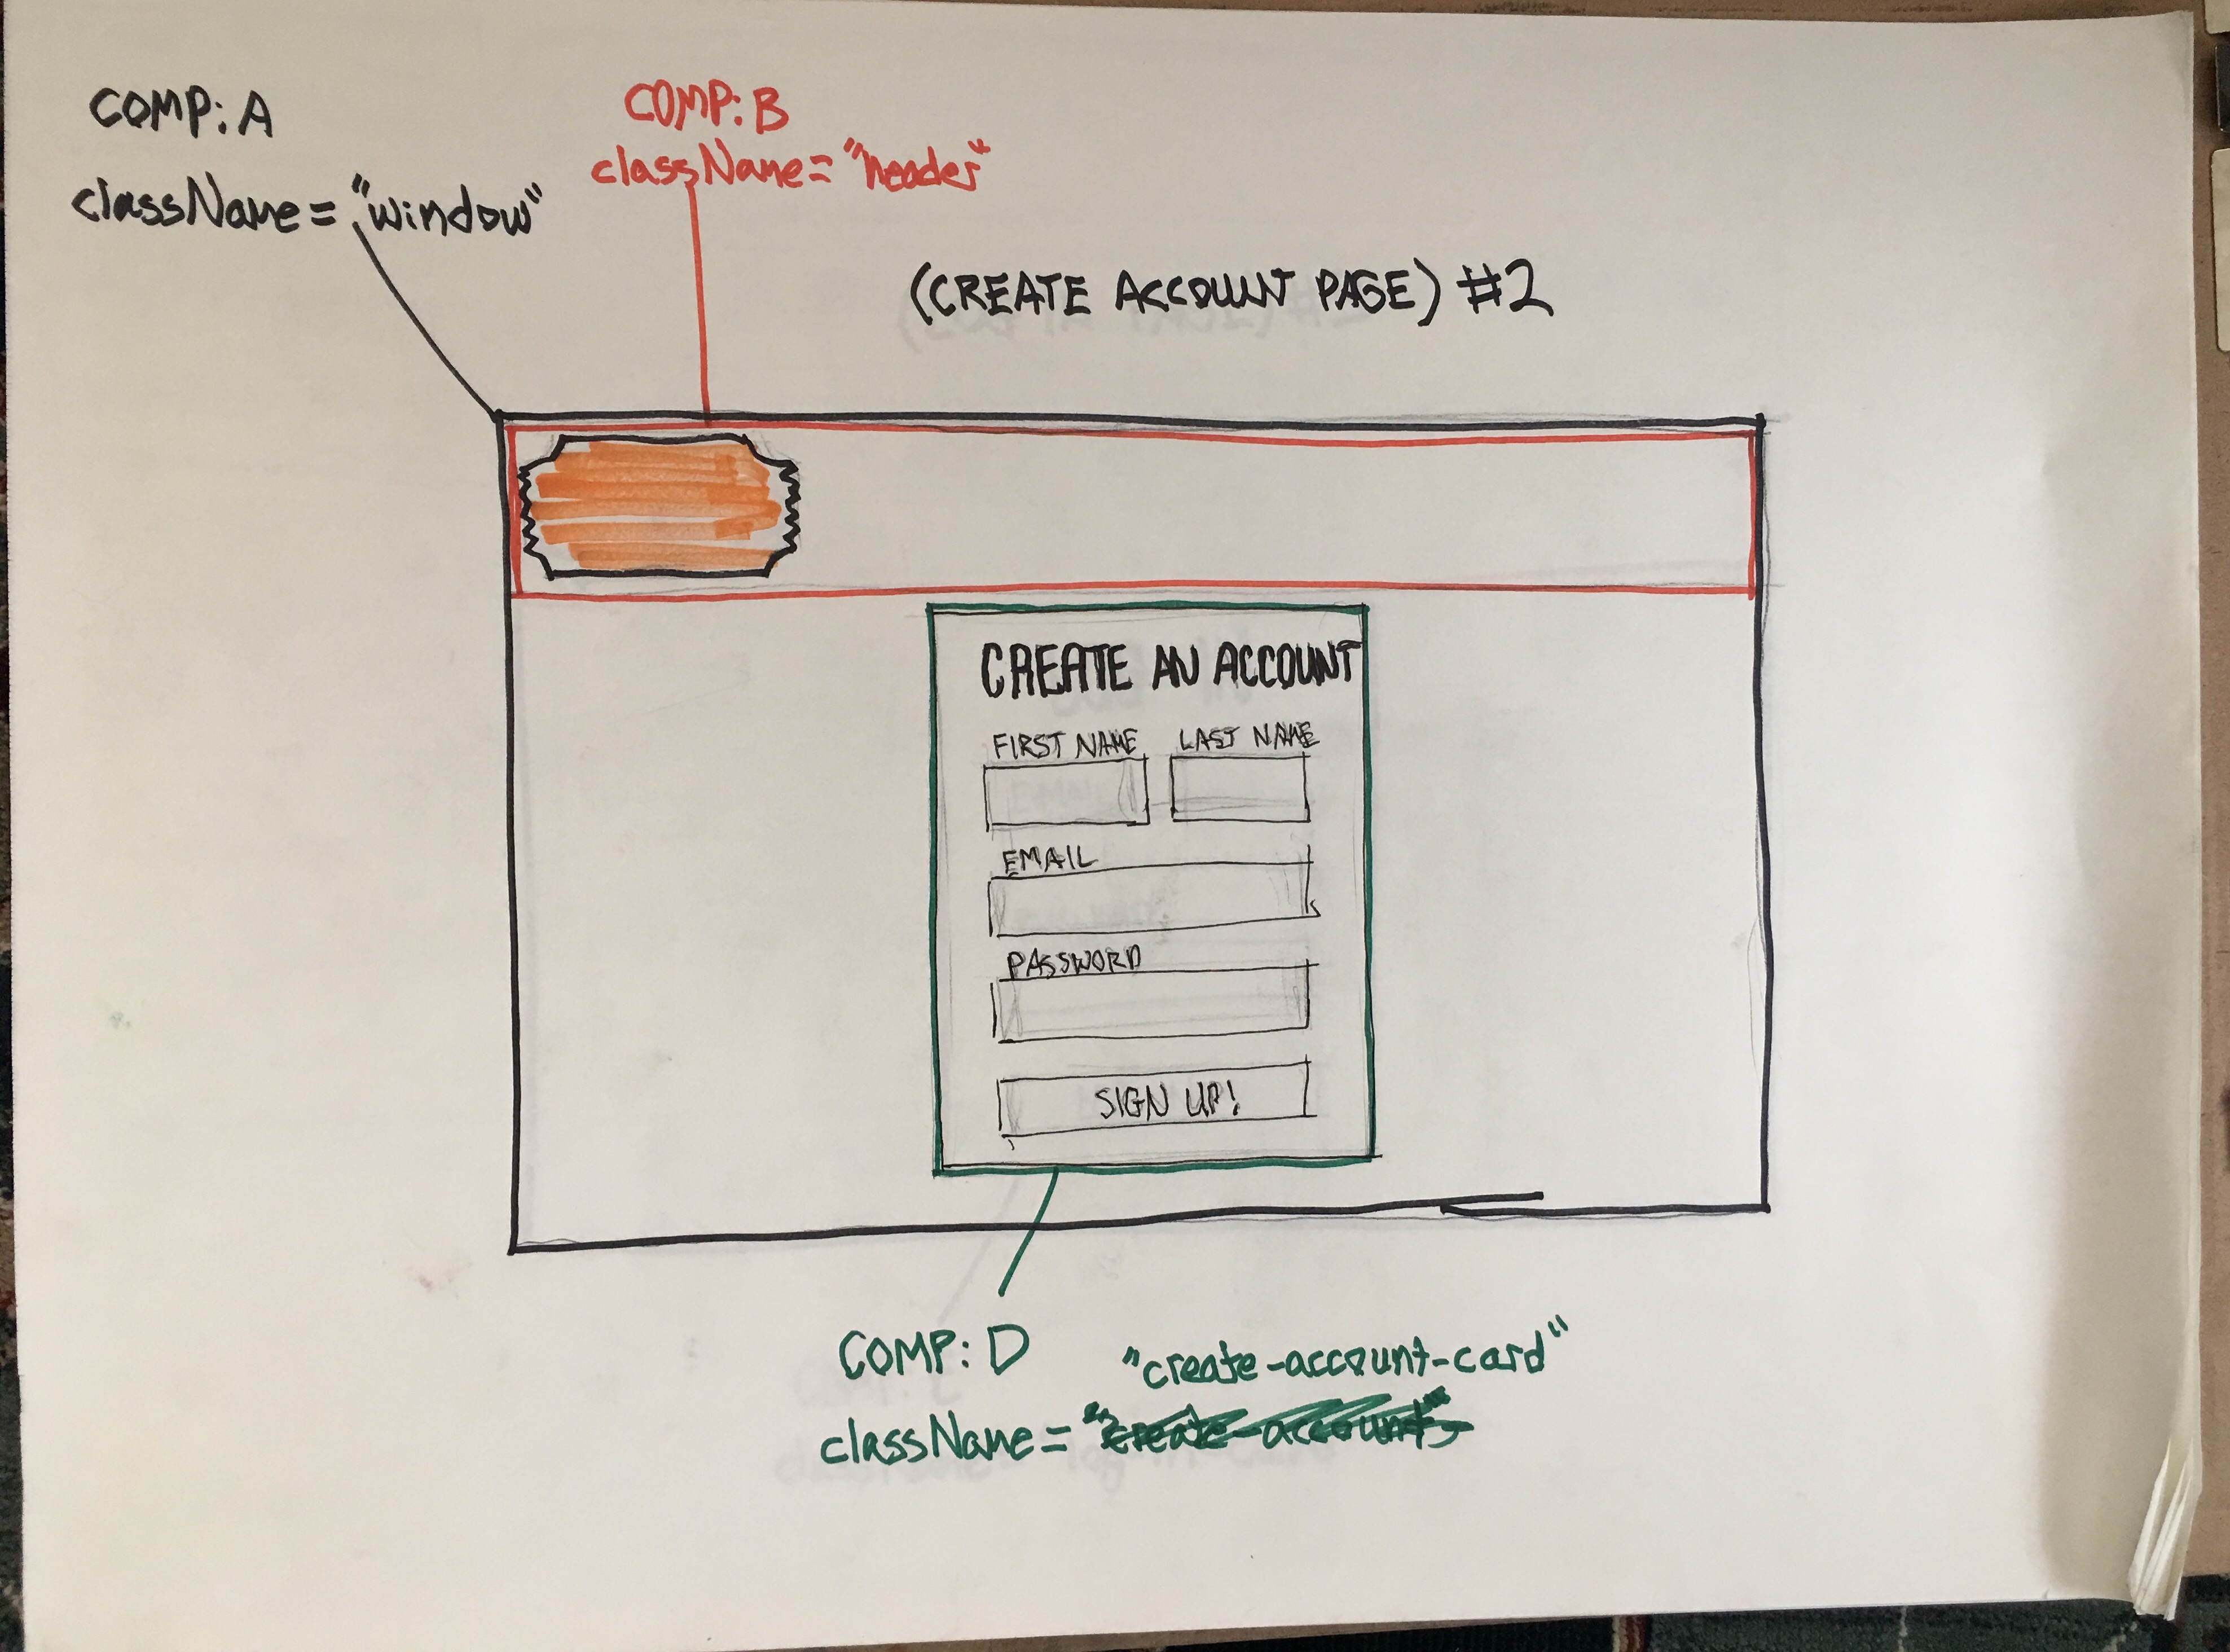 COMP: A
className = "window"
COMP: B
className = "header"
(CREATE ACCOUNT PAGE) #2
CREATE AN ACCOUNT
FIRST NAME LAST NAME
EMAIL
PASSWORD
SIGN UP!
COMP: D
"create-account-card"
className = "create-account"